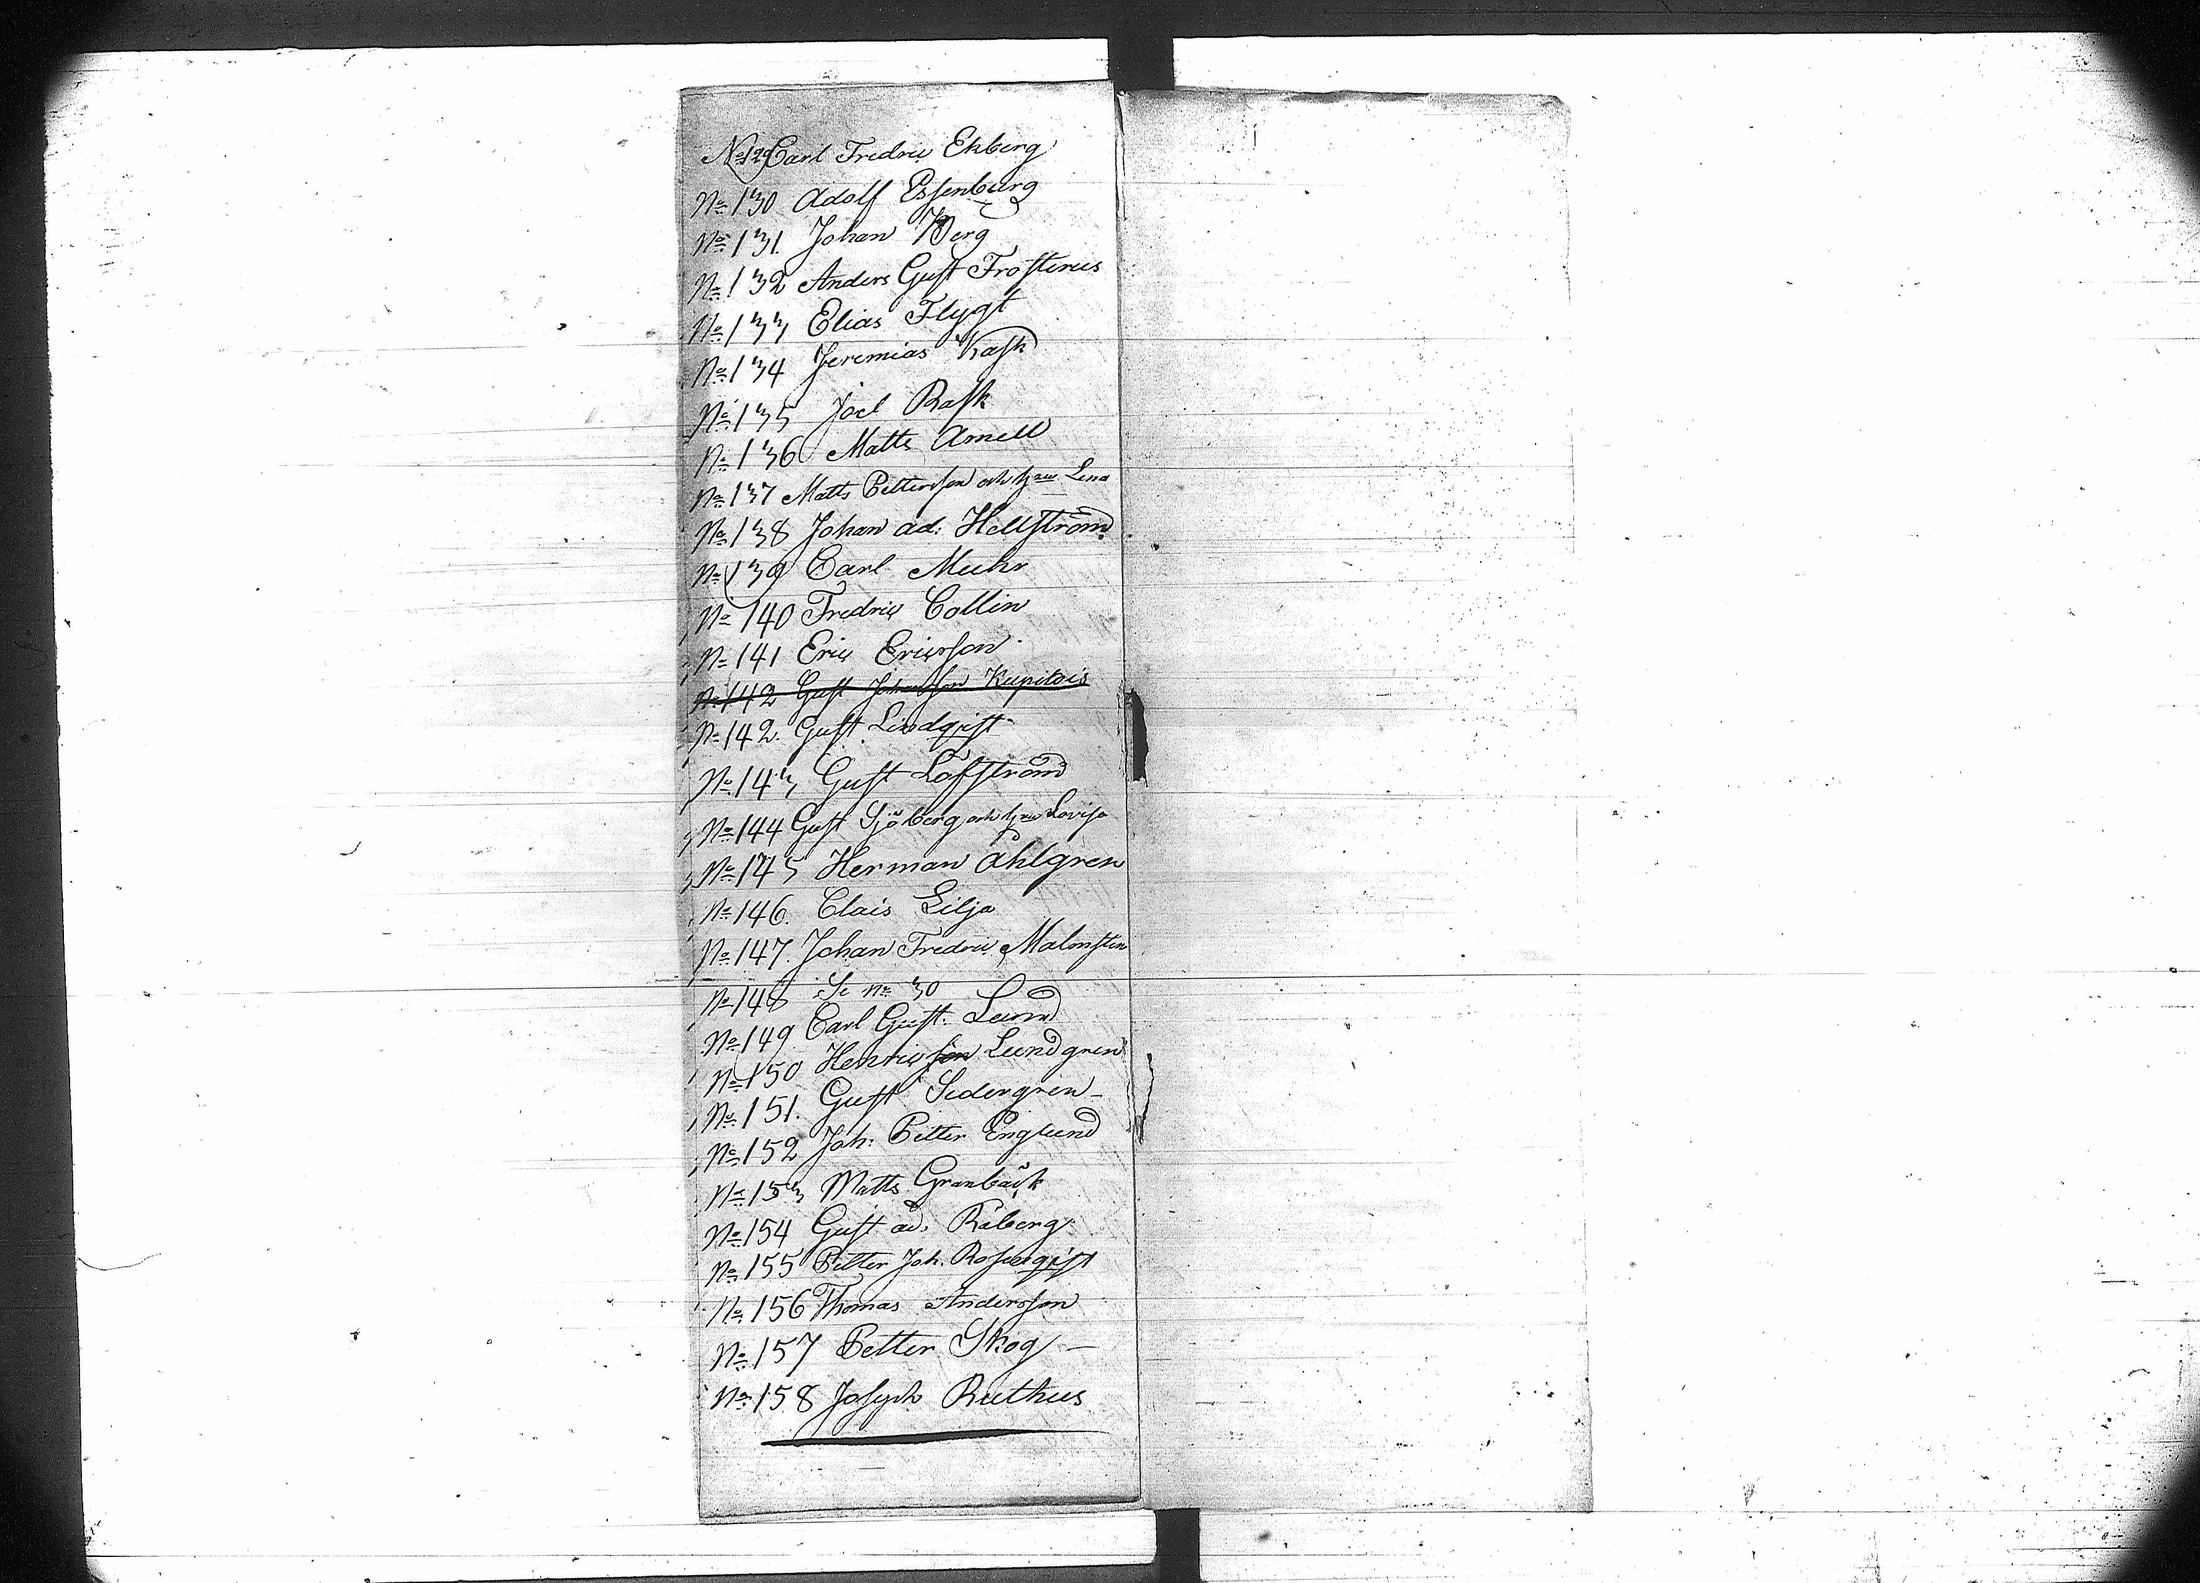 No 129 Carl Fredric Ekberg
No 130 Adolf Essenburg
No 131. Johan Berg
No 132 Anders Gust Frosterus
No 133 Elias Flygt
No 134 Jeremias Kask
No 135 Joel Rask
No 136 Matts Arnell
No 137 Matts Pettersson och Lena
No 138 Johan Ad: Hellström
No 139 Carl Muhr
No 140 Fredric Collin
No 141 Eric Ericsson
No 142 Gust Johansson Kupitois
No 142. Gust Lindqvist
No 143 Gust Löfström
No 144 Gust Sjöberg och Lovisa
No 145 Herman Åhlgren
No 146. Clais Lilja
No 147. Johan Fredric Malmsten
No 148 Se no 30
No 149 Carl Gust. Lund
No 150 Henricson Lundgren
No 151. Gust Sedergren
No 152 Joh: Petter Englund
No 153 Matts Granbäck
No 154 Gust ad. Råberg
No 155 Petter Joh. Rosenqvist
No 156 Thomas Andersson
No 157 Petter Skog
No 158 Joseph Ruthus